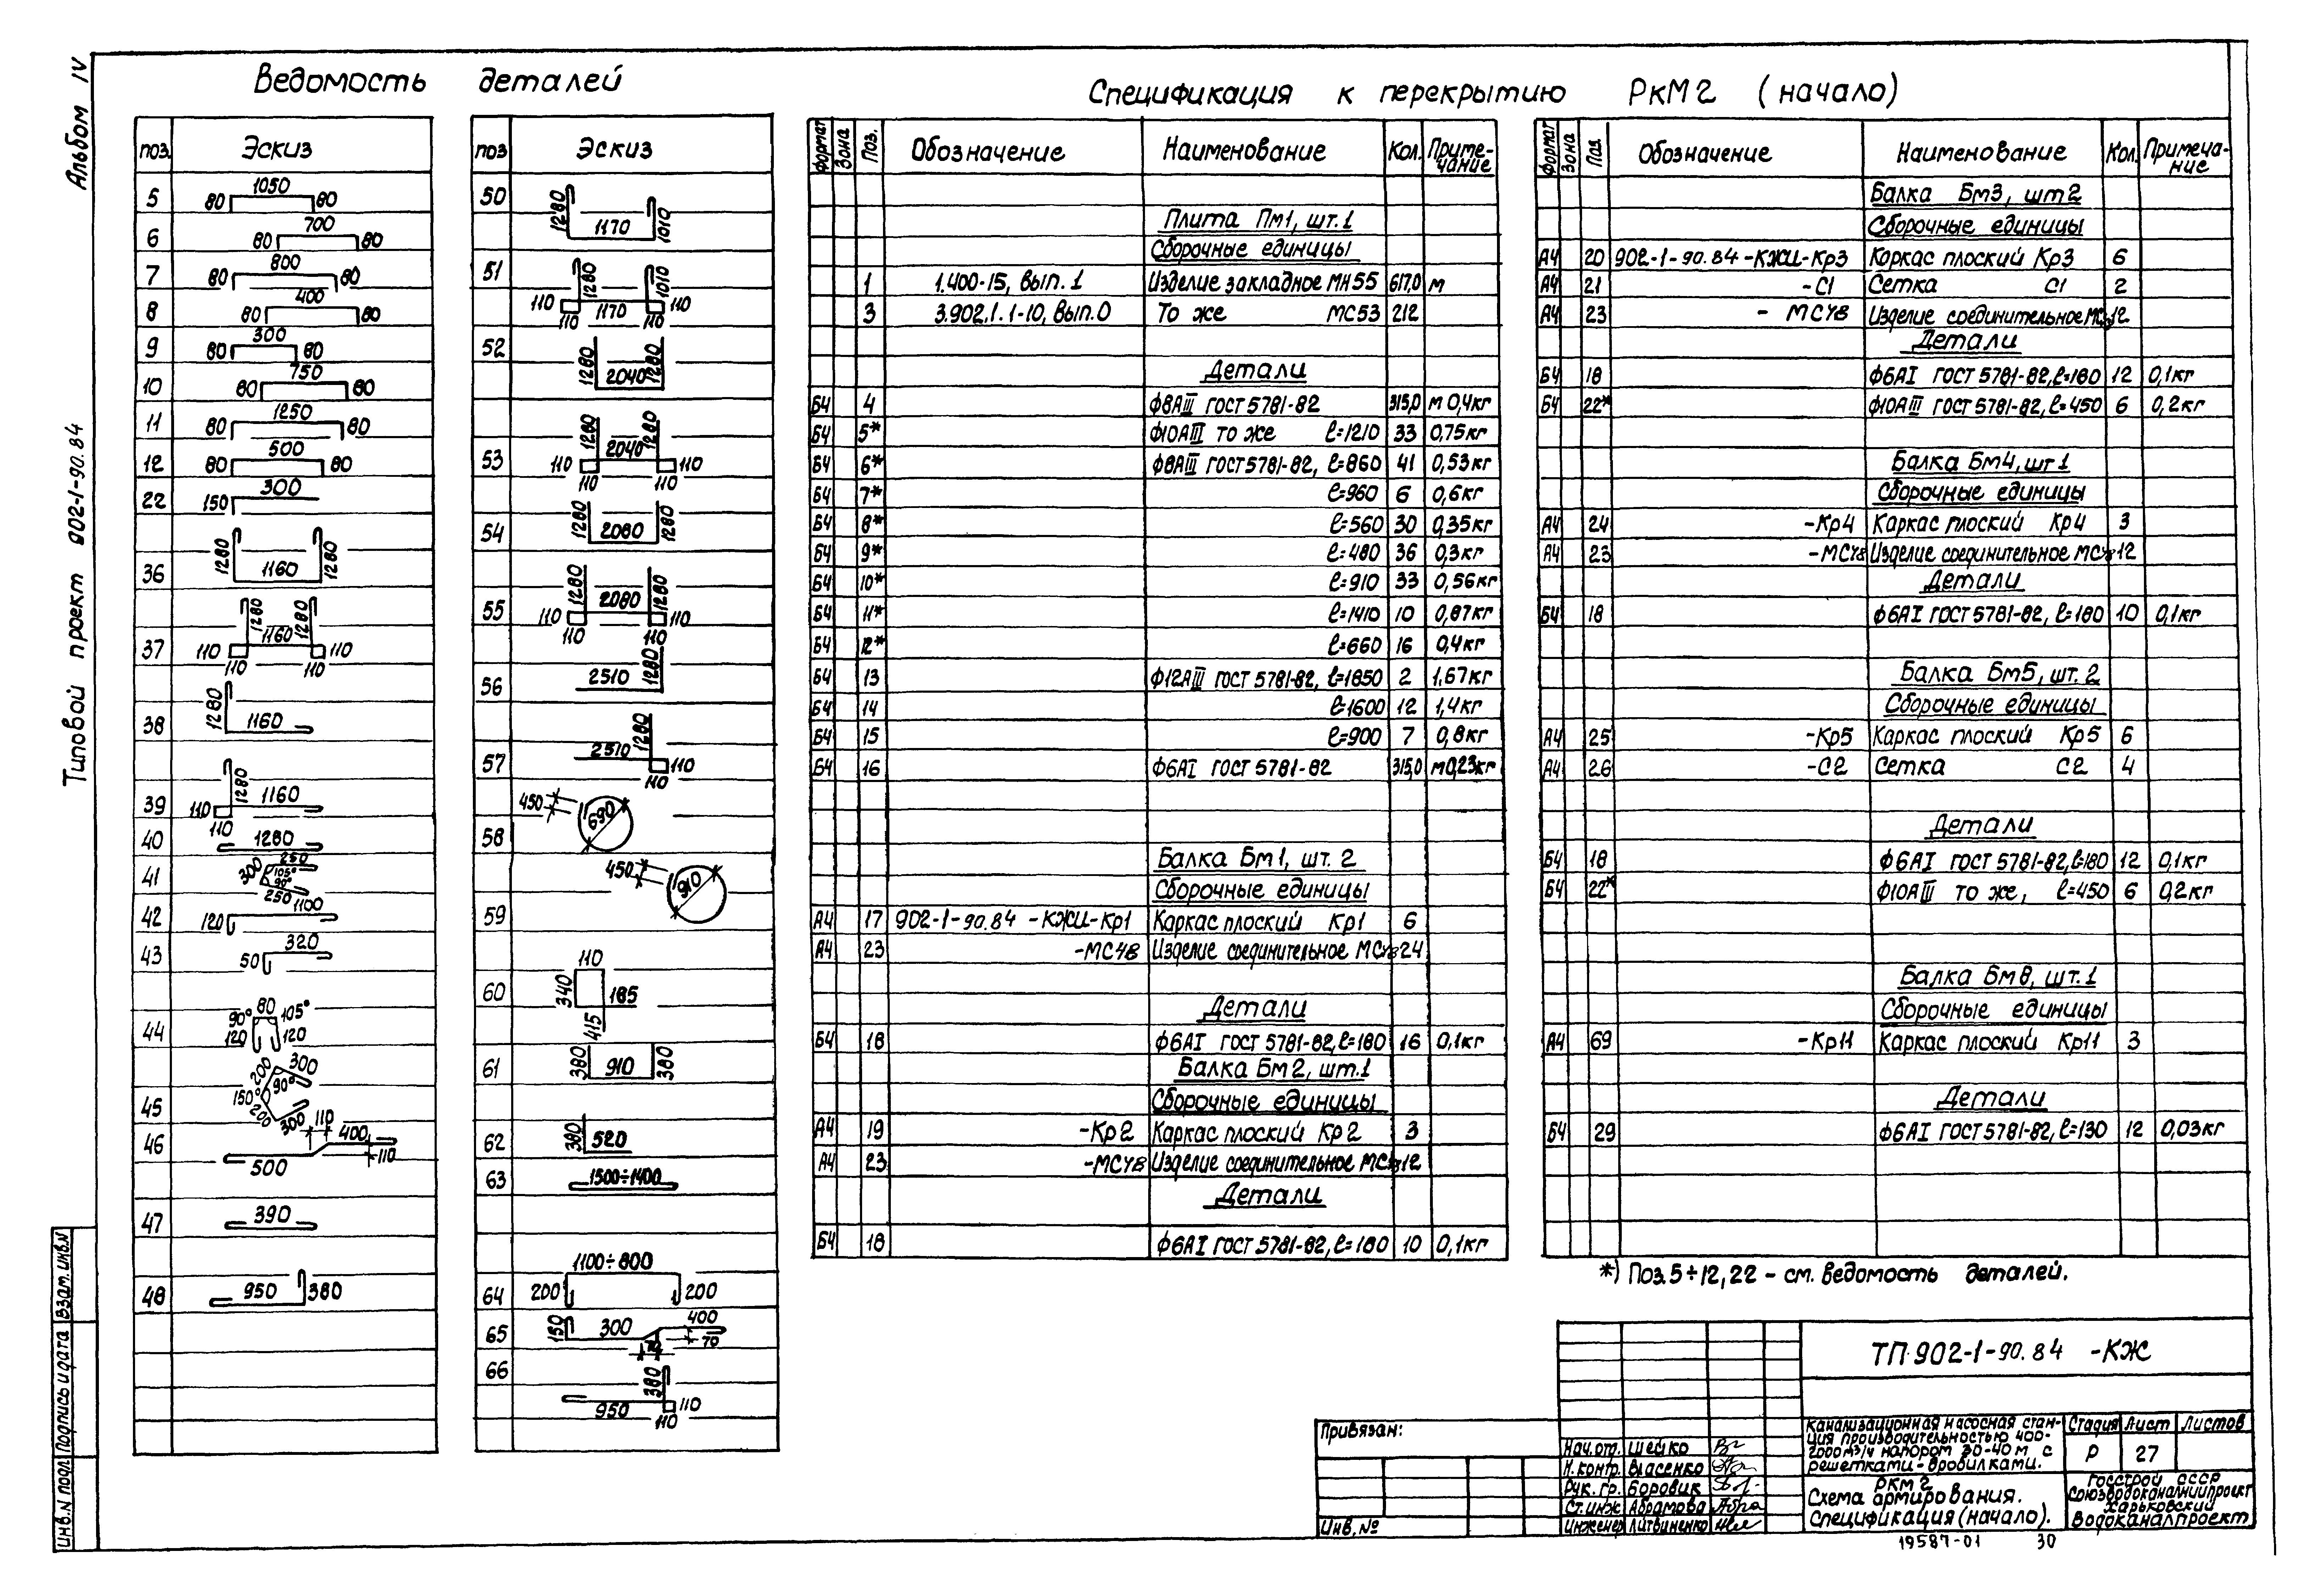 Альбом IV
Типовой проект 902-1-90.84
Ведомость деталей
поз. Эскиз
5 80 1050 80
6 80 700 80
7 80 800 80
8 80 400 80
9 80 300 80
10 80 750 80
11 80 1250 80
12 80 500 80
22 150 300
36 1280 1160 1280
37 1280 1280 110 1160 110 110 110
38 1280 1160
39 1280 1160 110 110
40 1280
41 300 250 105° 90° 250
42 120 1100
43 50 320
44 90° 80 105° 120 120
45 200 300 90° 150° 200 300
46 110 400 500 110
47 390
48 950 380
поз Эскиз
50 1280 1170 1010
51 1280 1010 110 1170 110 110 110
52 1280 2040 1280
53 1280 1280 110 2040 110 110 110
54 1280 2080 1280
55 1280 1280 110 2080 110 110 110
56 2510 1280
57 2510 1280 110 110
58 450 690
59 450 910
60 110 340 185 415
61 380 910 380
62 380 520
63 1500÷1400
64 1100÷800 200 200
65 150 300 400 70
66 380 950 110 110
Спецификация к перекрытию РкМ2 (начало)
Формат Зона Поз. Обозначение Наименование Кол. Приме-чание
Плита Пм1, шт. 1
Сборочные единицы
1 1.400-15, вып. 1 Изделие закладное МН55 617,0 м
3 3.902.1.1-10, вып.0 То же МС53 212
Детали
Б4 4 Ф8АIII ГОСТ 5781-82 315,0 м 0,4кг
Б4 5* Ф10АIII то же ℓ=1210 33 0,75кг
Б4 6* Ф8АIII ГОСТ 5781-82, ℓ=860 41 0,53кг
Б4 7* ℓ=960 6 0,6кг
Б4 8* ℓ=560 30 0,35кг
Б4 9* ℓ=480 36 0,3кг
Б4 10* ℓ=910 33 0,56кг
Б4 11* ℓ=1410 10 0,87кг
Б4 12* ℓ=660 16 0,4кг
Б4 13 Ф12АIII ГОСТ 5781-82, ℓ=1850 2 1,67кг
Б4 14 ℓ=1600 12 1,4кг
Б4 15 ℓ=900 7 0,8кг
Б4 16 Ф6АI ГОСТ 5781-82 315,0 м 0,23кг
Балка Бм1, шт. 2
Сборочные единицы
А4 17 902-1-90.84 -КЖИ-Кр1 Каркас плоский Кр1 6
А4 23 -МС4В Изделие соединительное МС4В 24
Детали
Б4 18 Ф6АI ГОСТ 5781-82, ℓ=180 16 0,1кг
Балка Бм2, шт.1
Сборочные единицы
А4 19 -Кр2 Каркас плоский Кр2 3
А4 23 -МС4В Изделие соединительное МС4В 12
Детали
Б4 18 Ф6АI ГОСТ 5781-82, ℓ=180 10 0,1кг
Формат Зона Поз. Обозначение Наименование Кол. Примеча-ние
Балка Бм3, шт 2
Сборочные единицы
А4 20 902-1-90.84 -КЖИ-Кр3 Каркас плоский Кр3 6
А4 21 -С1 Сетка С1 2
А4 23 - МС4В Изделие соединительное МС4В 12
Детали
Б4 18 Ф6АI ГОСТ 5781-82, ℓ=180 12 0,1кг
Б4 22* Ф10АIII ГОСТ 5781-82, ℓ=450 6 0,2кг
Балка Бм4, шт 1
Сборочные единицы
А4 24 -Кр4 Каркас плоский Кр4 3
А4 23 -МС4В Изделие соединительное МС4В 12
Детали
Б4 18 Ф6АI ГОСТ 5781-82, ℓ=180 10 0,1кг
Балка Бм5, шт. 2
Сборочные единицы
А4 25 -Кр5 Каркас плоский Кр5 6
А4 26 -С2 Сетка С2 4
Детали
Б4 18 Ф6АI ГОСТ 5781-82, ℓ=180 12 0,1кг
Б4 22* Ф10АIII то же, ℓ=450 6 0,2кг
Балка Бм8, шт. 1
Сборочные единицы
А4 69 -Кр11 Каркас плоский Кр11 3
Детали
Б4 29 Ф6АI ГОСТ 5781-82, ℓ=130 12 0,03кг
*) Поз. 5÷12, 22 - см. ведомость деталей.
ТП 902-1-90.84 -КЖ
Привязан:
Инв. №
Нач. от. Шейко
Н. контр. Власенко
Рук. гр. Боровик
Ст. инж Абрамова
Инженер Литвиненко
Канализационная насосная стан-
ция производительностью 400-
2000м³/ч напором 30-40 м с
решетками-дробилками.
Стадия Лист Листов
Р 27
РКМ 2
Схема армирования.
Спецификация (начало).
Госстрой СССР
Союзводоканалниипроект
Харьковский
Водоканалпроект
19587-01 30
Инв.N подл Подпись и дата Взам. инв.N